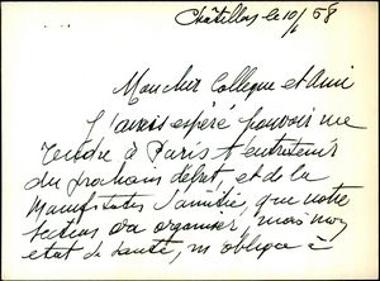 Châtillon le 10/1 58
Mon cher Collegue et Ami
J'avais espéré pouvoir me
rendre à Paris t'entretenir
du prochain débat, et de la
Manifestation d'amitié, que notre
section va organiser, mais mon
état de santé, m'oblige à